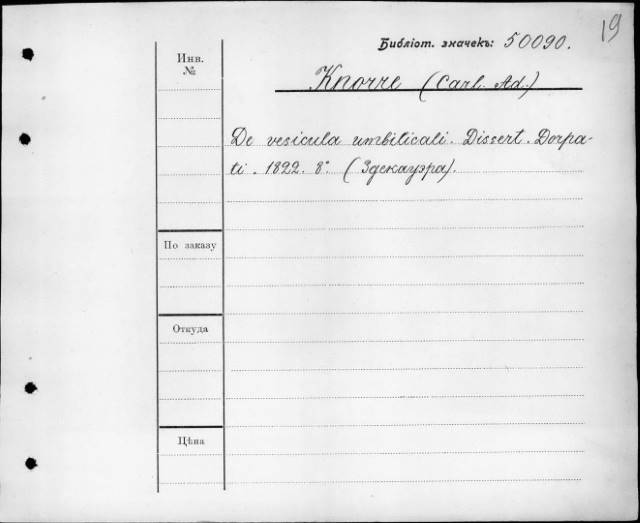 19
Библіот. значекъ: 50090.
Инв.
№
Knorre (Carl. Ad.)
De vesicula umbilicali. Dissert. Dorpa-
ti. 1822. 8° (Здекауэра).
По заказу
Откуда
Цѣна